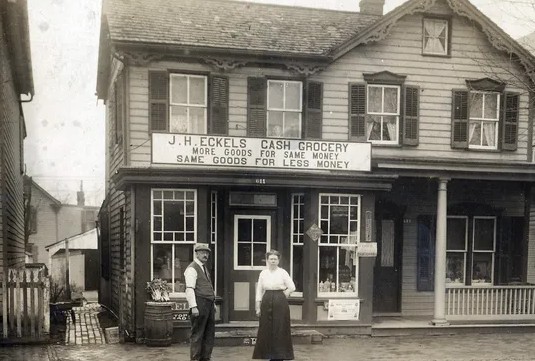 J.H. ECKELS CASH GROCERY
MORE GOODS FOR SAME MONEY
SAME GOODS FOR LESS MONEY
611